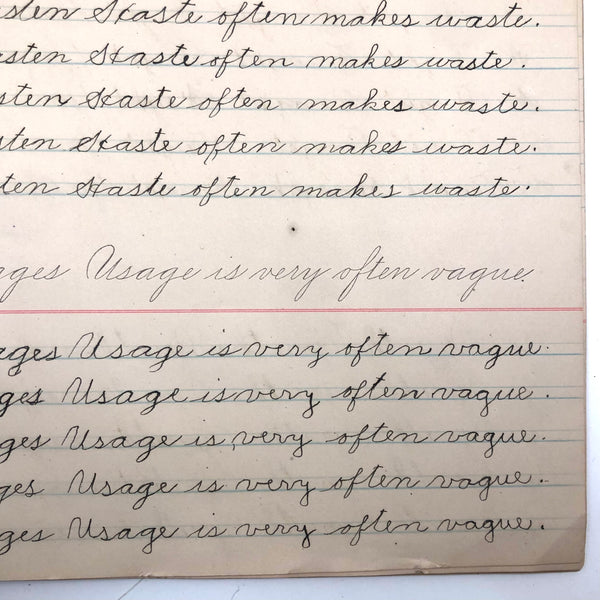 sten Haste often makes waste.
asten Haste often makes waste.
sten Haste often makes waste.
sten Haste often makes waste.
ten Haste often makes waste.
ages Usage is very often vague.
ages Usage is very often vague.
ges Usage is very often vague.
ges Usage is very often vague.
ges Usage is very often vague.
ges Usage is very often vague.